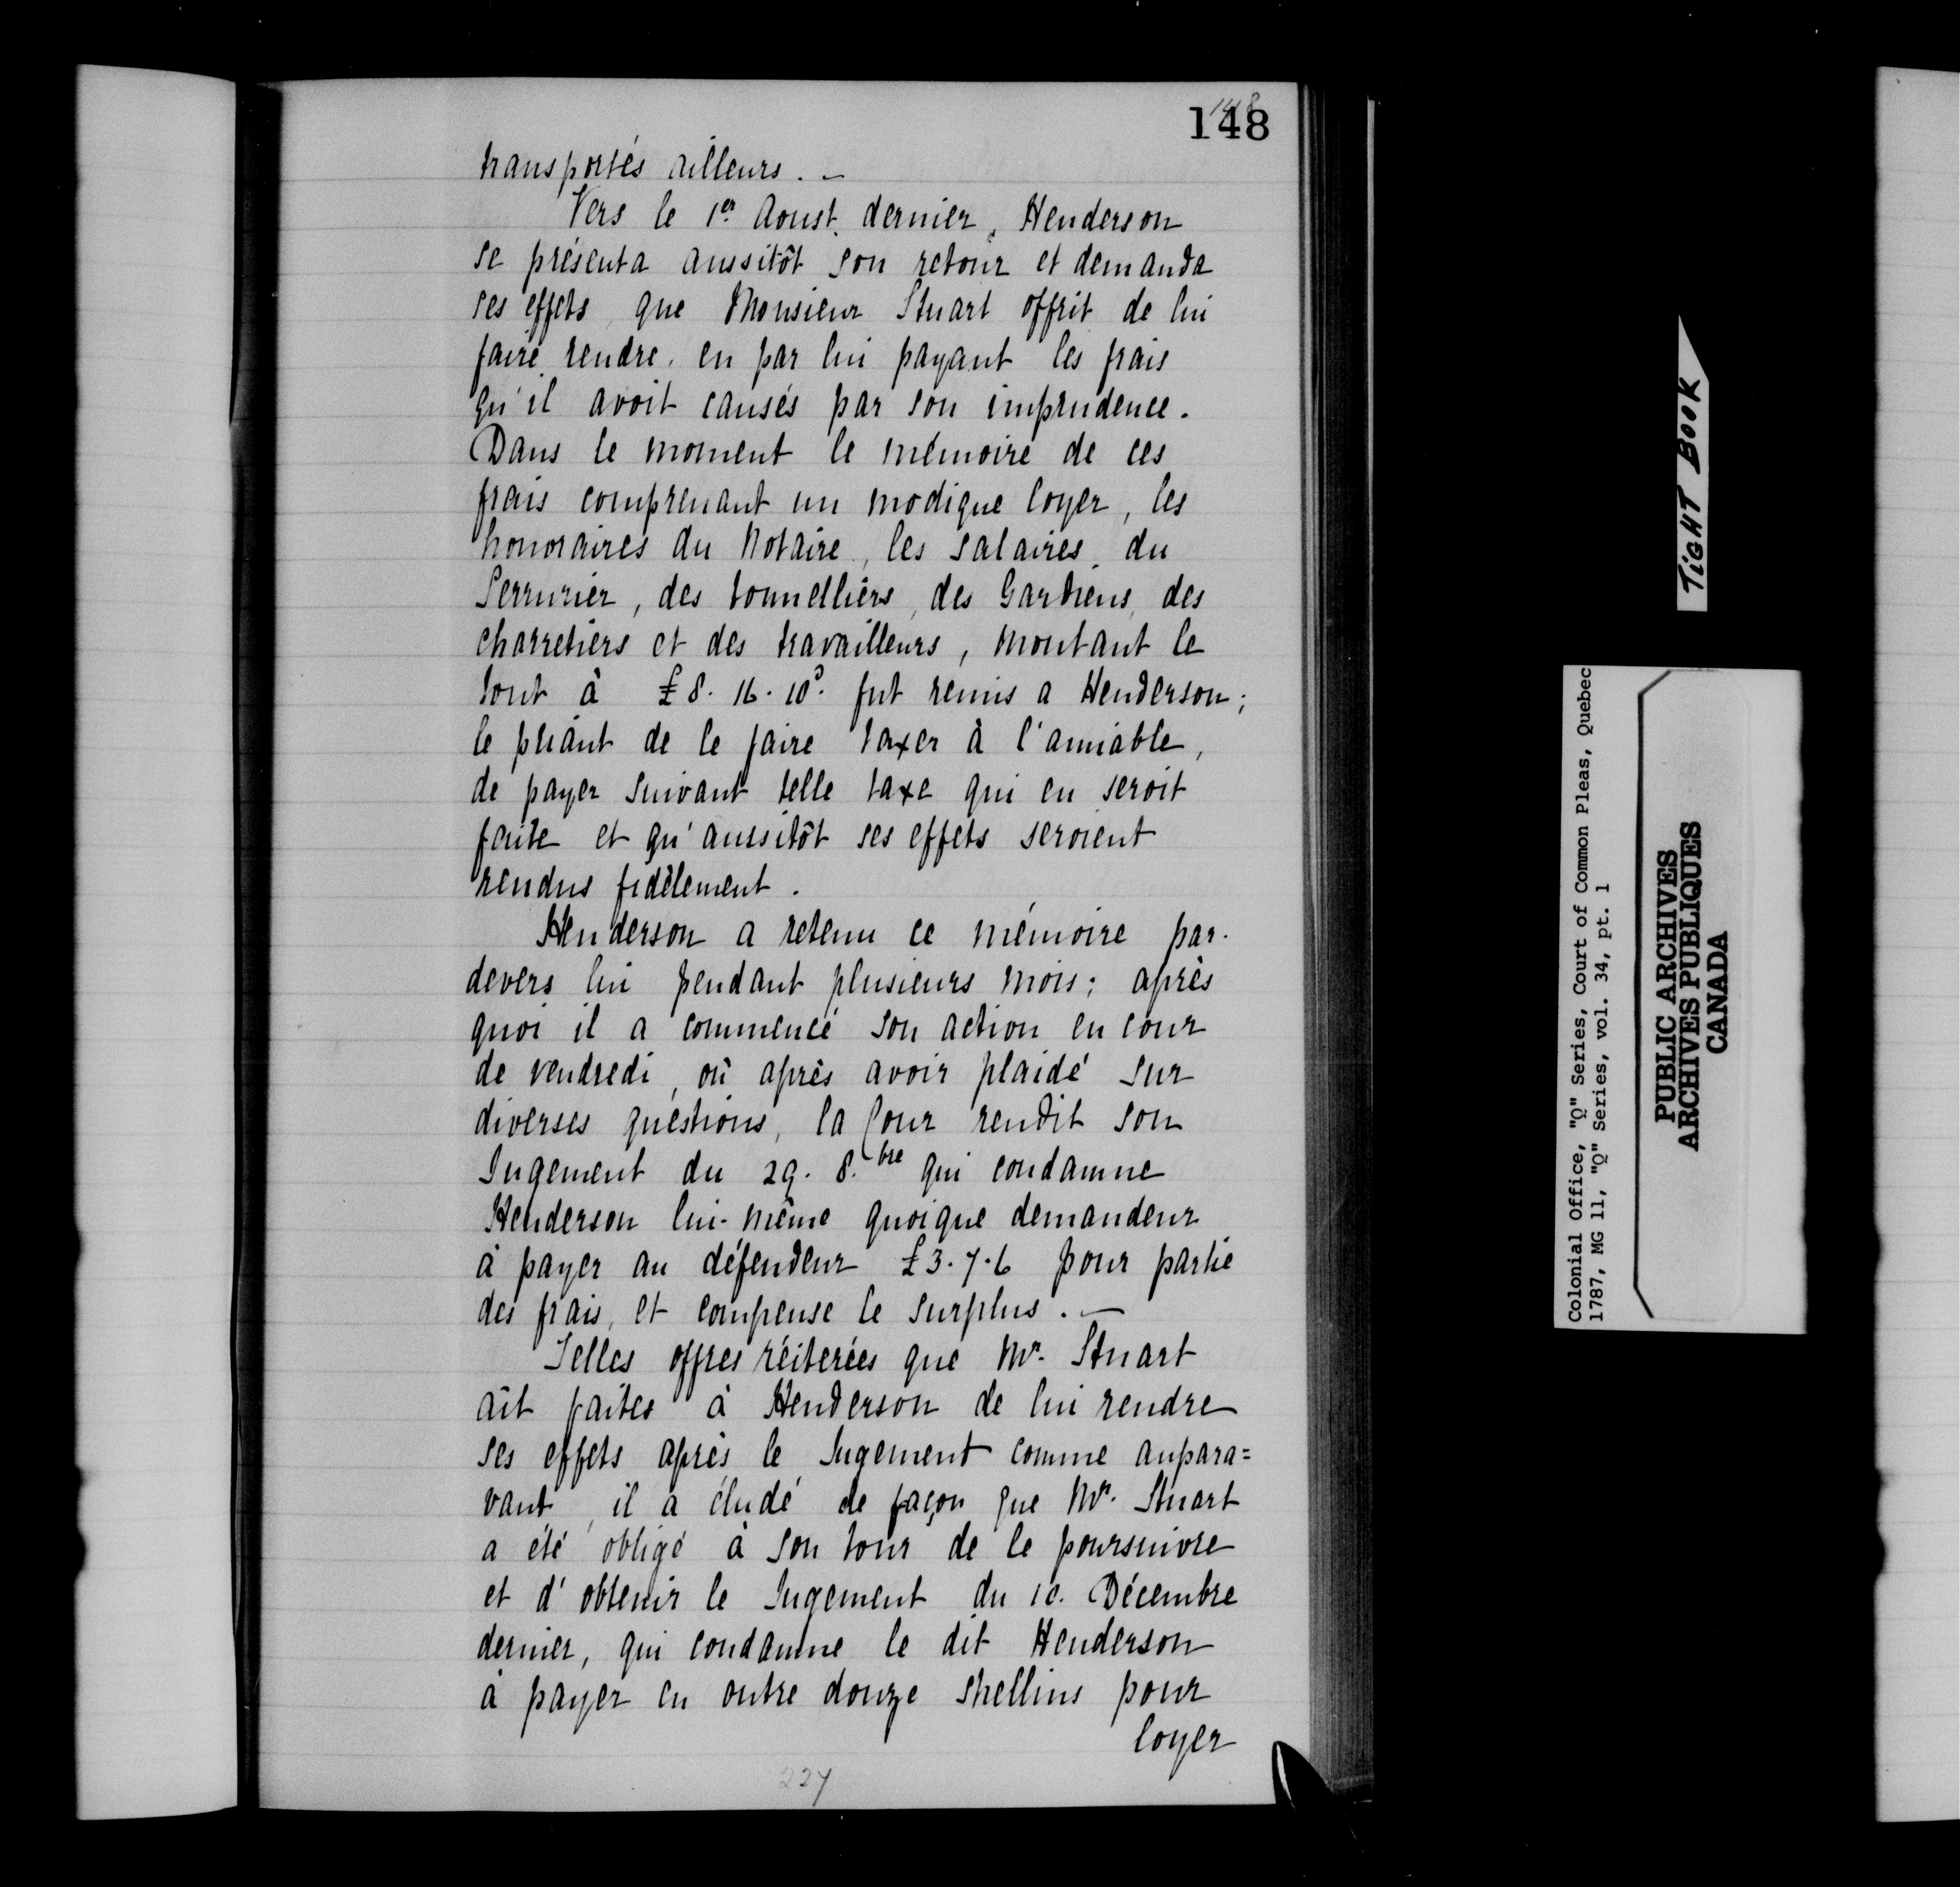 148
148
transportés ailleurs. —
Vers le 1er Aoust dernier, Henderson
se présenta aussitôt son retour et demanda
ses effets, que Monsieur Stuart offrit de lui
faire rendre en par lui payant les frais
qu'il avoit causés par son imprudence.
Dans le moment le mémoire de ces
frais comprenant un modique loyer, les
honoraires du Notaire, les salaires du
Serrurier, des tonnelliers, des Gardiens, des
charretiers et des travailleurs, montant le
tout à £8. 16. 10d. fut remis a Henderson;
le priant de le faire taxer à l'amiable,
de payer suivant telle taxe qui en seroit
faite et qu'aussitôt ses effets seroient
rendus fidèlement.
Henderson a retenu ce mémoire par-
devers lui pendant plusieurs mois; après
quoi il a commencé son action en cour
de vendredi, où après avoir plaidé sur
diverses questions, la Cour rendit son
Jugement du 29. 8.bre qui condamne
Henderson lui-même quoique demandeur
à payer au défendeur £3. 7. 6 pour partie
des frais, et compense le surplus. —
Telles offres réiterées que Mr. Stuart
ait faites à Henderson de lui rendre
ses effets après le Jugement comme aupara=
vant, il a éludé de façon que Mr. Stuart
a été obligé à son tour de le poursuivre
et d'obtenir le Jugement du 10. Décembre
dernier, qui condamne le dit Henderson
à payer en outre douze shellins pour
loyer
227
TIGHT BOOK
Colonial Office, "Q" Series, Court of Common Pleas, Quebec
1787, MG 11, "Q" Series, vol. 34, pt. 1
PUBLIC ARCHIVES
ARCHIVES PUBLIQUES
CANADA